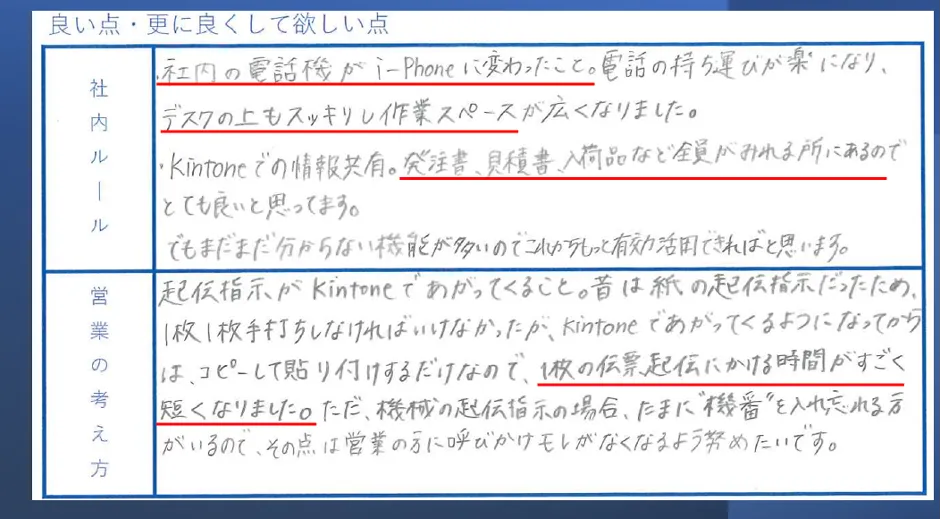 良い点・更に良くして欲しい点
社内ルール
・社内の電話機がi-Phoneに変わったこと。電話の持ち運びが楽になり、
デスクの上もスッキリし作業スペースが広くなりました。
・Kintoneでの情報共有。発注書、見積書、入荷品など全員がみれる所にあるので
とても良いと思ってます。
でもまだまだ分からない機能が多いのでこれからもっと有効活用できればと思います。
営業の考え方
起伝指示がKintoneであがってくること。昔は紙の起伝指示だったため、
1枚1枚手打ちしなければいけなかったが、Kintoneであがってくるようになってから
は、コピーして貼り付けするだけなので、1枚の伝票起伝にかける時間がすごく
短くなりました。ただ、機械の起伝指示の場合、たまに"機番"を入れ忘れる方
がいるので、その点は営業の方に呼びかけモレがなくなるよう努めたいです。